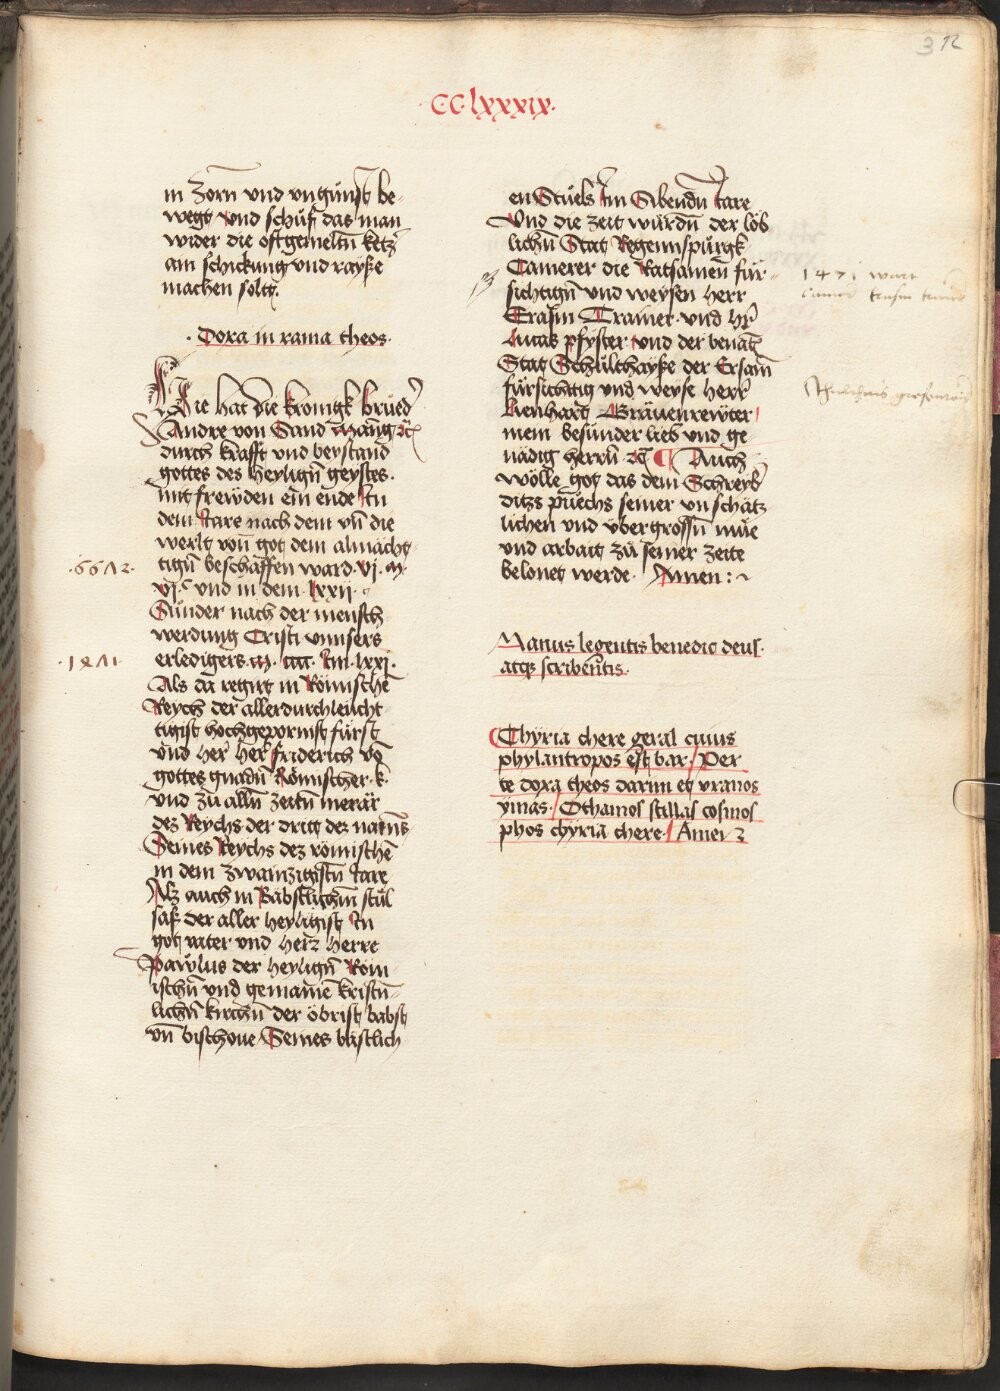 312
CC lxxxix
in Zorn vnd vngünst be-
wegt vnd schüf das man
wider die oftgemeltn ketz̄
ain schickung vnd rayße
machen soltt.
· Doxa in rama theos ·
Hie hat die kronigk brüed̄
Andre von Sand Mang ꝛc̄
durch krafft vnd beystand
gottes des heylign̄ geystes.
mit frewden ein ende In
dem Iare nach dem vn̄ die
werlt von̄ got dem almächt
tign̄ beschaffen ward · vj · m ·
· 6672 ·
vj · c vnd in dem · lxxij ·
Sunder nach der mensch
werdung Cristi vnnsers
erledigers · m · cccc · Im · lxxj ·
· 1471 ·
Als da regirt in Römischē
Reych der allerdurchleücht
tigist hochgepornist fürst
vnd her her friderich vō
gottes gnadn̄ Römischer · k ·
vnd zu alln̄ zeitn̄ merär
dez Reychs der dritt dez namēs
Seines Reychs dez römischē
in dem zwainzigistn̄ Iare
Alz auch in Babstlichm̄ stůl
saß der aller heyligist In
got vater vnd herz herre
Pawlus der heylign̄ Röm
ischn̄ vnd gemaine kristn̄-
lichn̄ kirchn̄ der öbrist babst
vn̄ bischoue Seines bästlich
en Stuels Im Sibendn̄ Iare
Vnd die zeit würdn̄ der löb
lichn̄ Stat Regennspürgk
Camerer die Ratsamen für-
sichtign̄ vnd weysen herr
1471 wart
Erasm Trainer · vnd Hr̄
Lucas pfyster vnd der benāt
Stat Schulthayße der Ersam̄
fürsichtig vnd weyse herr
Lienhart Gräuenrewter
mein besunder lieb vnd ge
nädig herrn̄ ꝛc̄ ¶ Auch
wölle got das dem Schreyb̄
ditzs püechs seiner vnschätz-
lichen vnd vbergrossn̄ müe
vnd arbait zu seiner zeite
belonet werde · Amen : ~
Manus legentis benedic deus ·
atqꝫ scribentis ·
Chyria chere geral cuius
phylantropos est bar / Per
te doxa theos darun et vranos
ymas / Othamos stillas cosmos
phos chyria chere / Amen